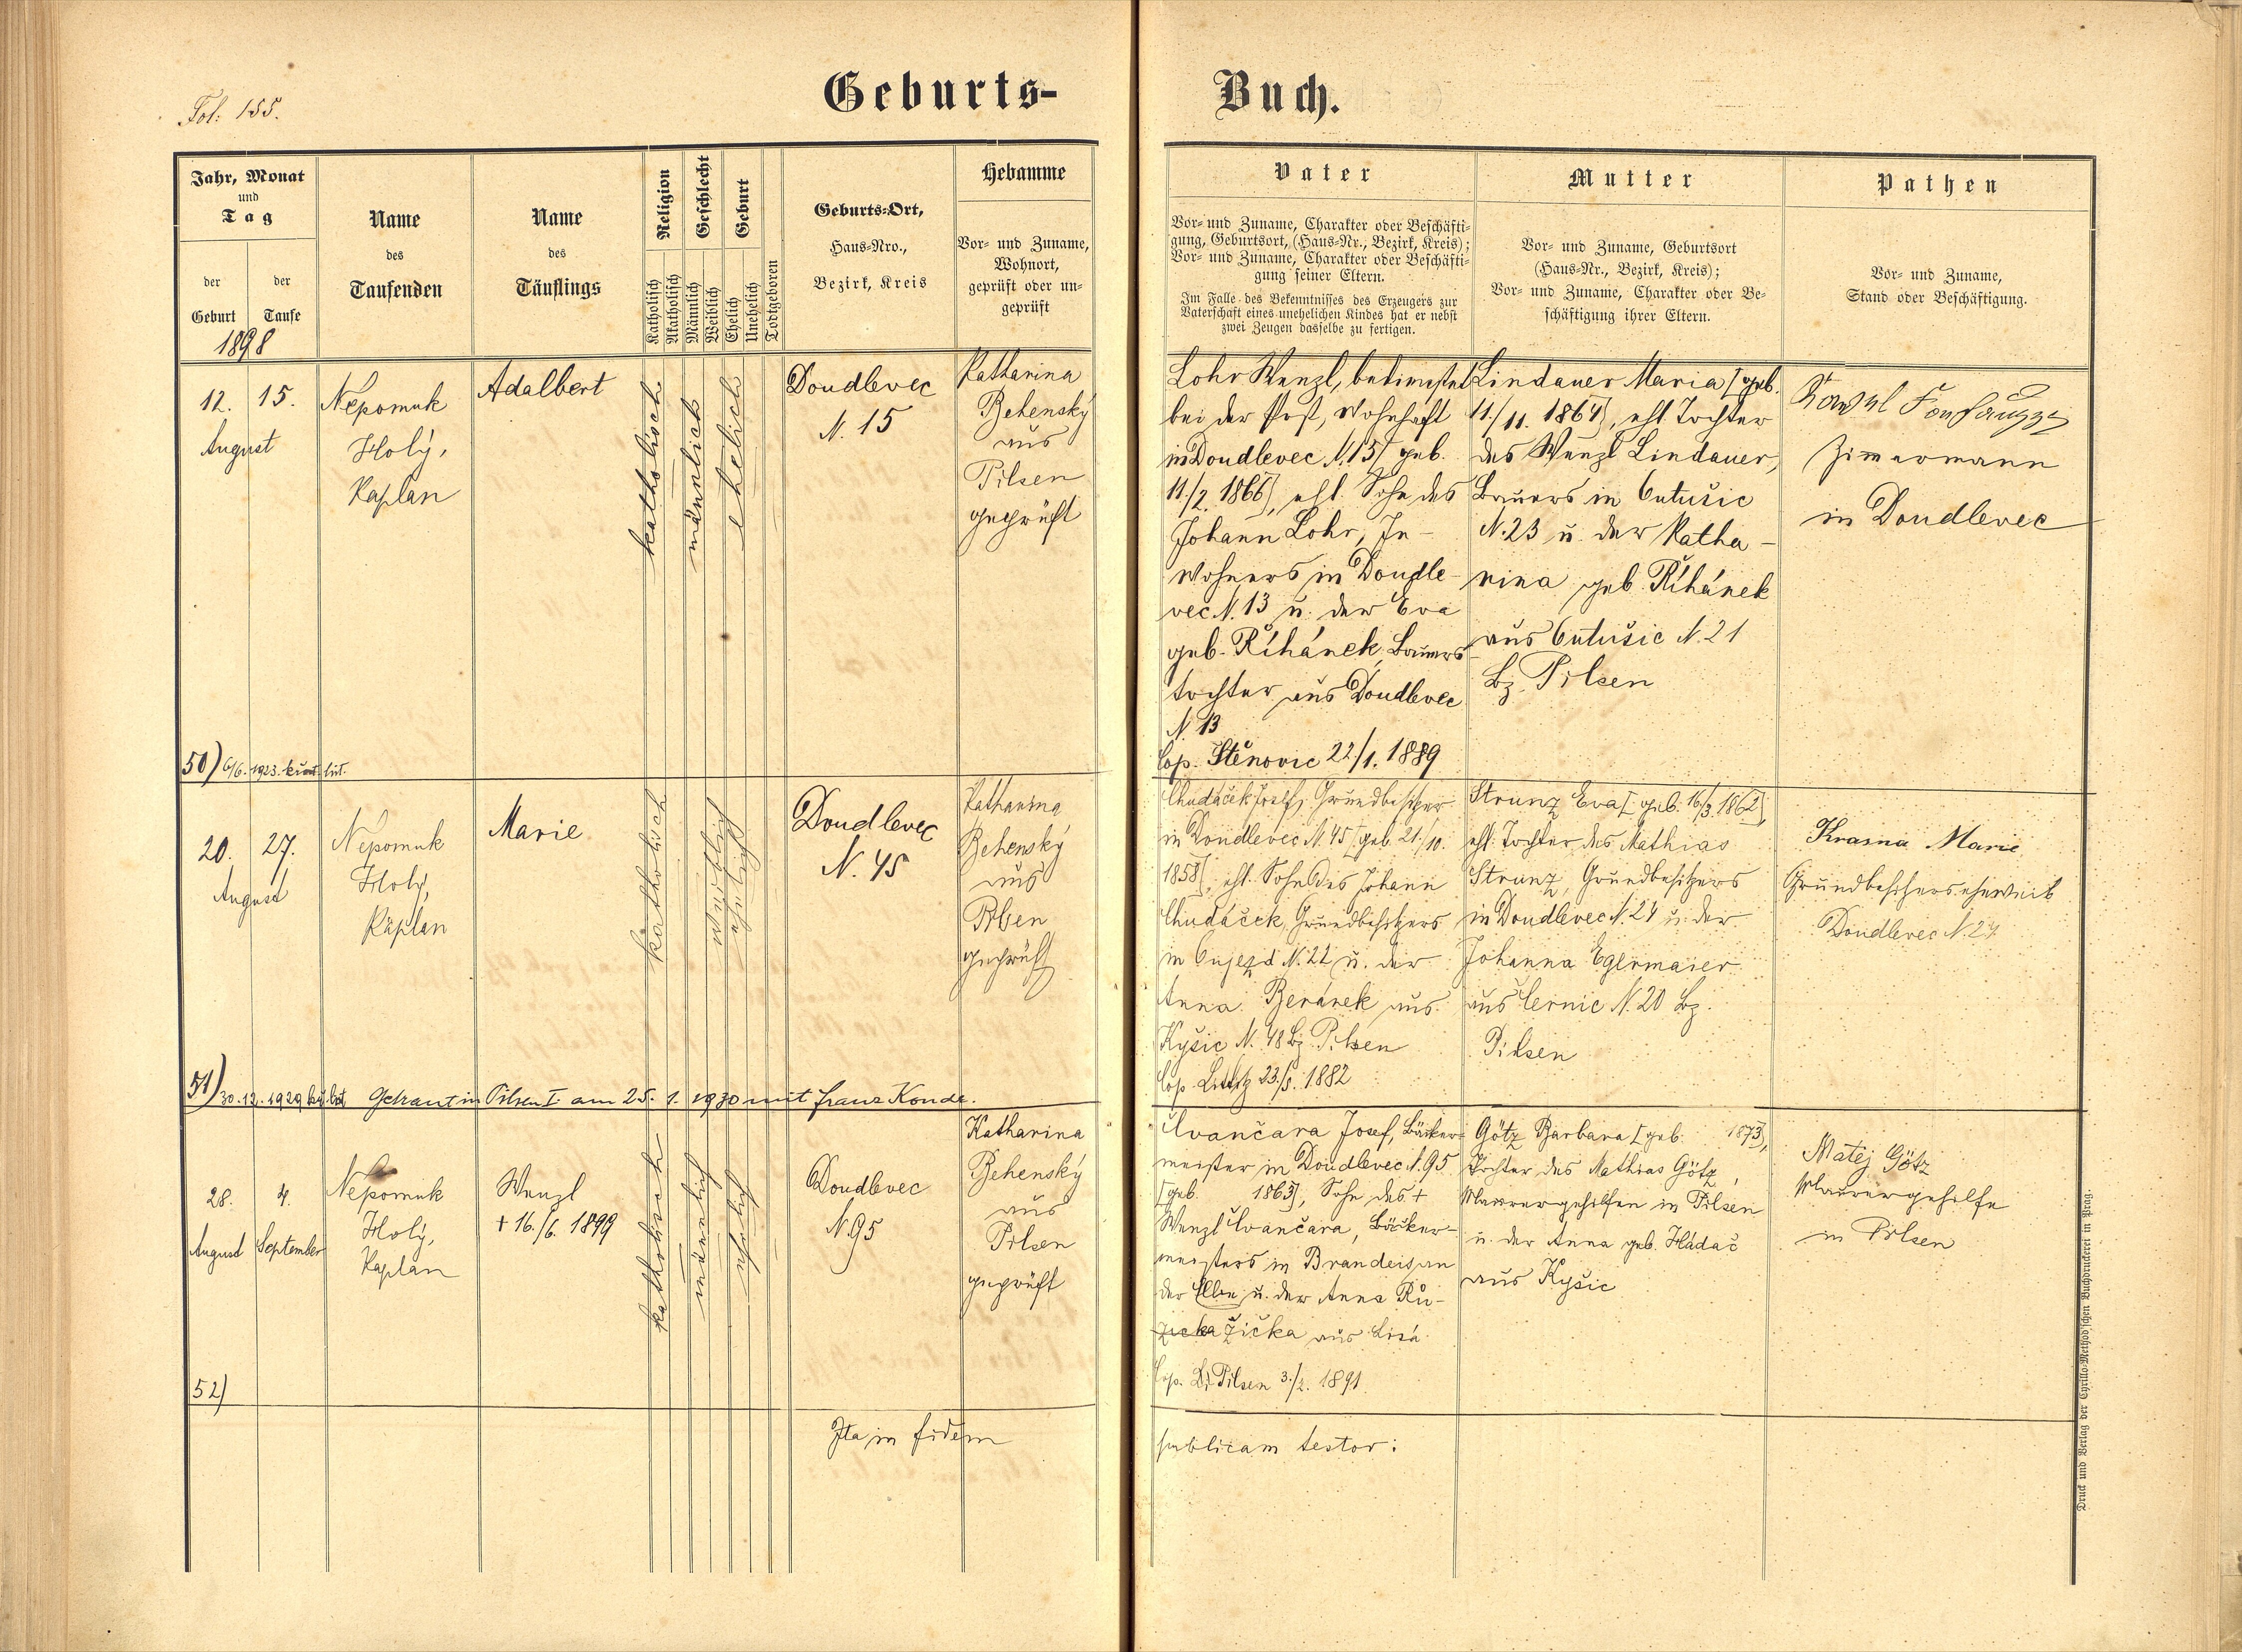 Fol: 155.
Geburts-
Buch.
Jahr, Monat
und
Tag
der
Geburt
der
Taufe
Name
des
Taufenden
Name
des
Täuflings
Religion
Katholisch
Akatholisch
Geschlecht
Männlich
Weiblich
Geburt
Ehelich
Unehelich
Todtgeboren
Geburts-Ort,
Haus-Nro.,
Bezirk, Kreis
Hebamme
Vor- und Zuname,
Wohnort,
geprüft oder un-
geprüft
Vater
Vor- und Zuname, Charakter oder Beschäfti-
gung, Geburtsort, (Haus-Nr., Bezirk, Kreis);
Vor- und Zuname, Charakter oder Beschäfti-
gung seiner Eltern.
Im Falle des Bekenntnisses des Erzeugers zur
Vaterschaft eines unehelichen Kindes hat er nebst
zwei Zeugen dasselbe zu fertigen.
Mutter
Vor- und Zuname, Geburtsort
(Haus-Nr., Bezirk, Kreis);
Vor- und Zuname, Charakter oder Be-
schäftigung ihrer Eltern.
Pathen
Vor- und Zuname,
Stand oder Beschäftigung.
1898
12. 15.
August
Nepomuk
Holý,
Kaplan
Adalbert
katholisch
männlich
ehelich
Doudlevec
N. 15
Katharina
Behenský
aus
Pilsen
geprüft
Lohr Wenzl, bedienstet
bei der Post, wohnhaft
in Doudlevec N. 15 [geb.
11./2. 1866], ehl. Sohn des
Johann Lohr, In-
wohners in Doudle-
vec N. 13 u. der Eva
geb. Říhánek, Bauers
tochter aus Doudlevec
N. 13
Cop. Stěnovic 22/1. 1889
Lindauer Maria [geb.
11./11. 1864], ehl. Tochter
des Wenzl Lindauer,
Bauers in Cutušic
N. 23 u. der Katha-
rina geb. Říhánek
aus Cutušic N. 21
Bz. Pilsen
Zimmermann
in Doudlevec
50) 6/6. 1923. křest. list.
20. 27.
August
Nepomuk
Holý,
Kaplan
Marie
katholisch
weiblich
ehelich
Doudlevec
N. 45
Katharina
Behenský
aus
Pilsen
geprüft
Chudáček Josef, Grundbesitzer
in Doudlevec N. 45 [geb. 21./10.
1858], ehl. Sohn des Johann
Chudáček, Grundbesitzers
in Oujezd N. 22 u. der
Anna Beránek aus
Kyšic N. 48 Bz. Pilsen
Cop. Littitz 23./5. 1882
Strunz Eva [geb. 16/3. 1862],
ehl. Tochter des Mathias
Strunz, Grundbesitzers
in Doudlevec N. 24 u. der
Johanna Egermaier
aus Černic N. 20 Bz.
Pilsen
Krasna Marie
Grundbesitzers eheweib
Doudlevec N. 24
51) 30. 12. 1929 Getraut in Pilsen I am 25. 1. 1930 mit Franz Konde.
28. 4.
August September
Nepomuk
Holý,
Kaplan
Wenzl
+ 16./6. 1899
katholisch
männlich
ehelich
Doudlevec
N. 95
Katharina
Behenský
aus
Pilsen
geprüft
Čvančara Josef, Bäcker-
meister in Doudlevec N. 95
[geb. 1863], Sohn des +
Wenzl Čvančara, Bäcker-
meisters in Brandeis an
der Elbe u. der Anna Rů-
žička žička aus Lisá
Cop. Pilsen 3./2. 1891
Götz Barbara [geb. 1873],
Tochter des Mathias Götz,
Maurergehilfen in Pilsen
u. der Anna geb. Hádač
aus Kyšic
Matěj Götz
Maurergehilfe
in Pilsen
52)
Ita in fidem
publicam testor:
Druck und Verlag der Cyrillo-Method'schen Buchdruckerei in Prag.